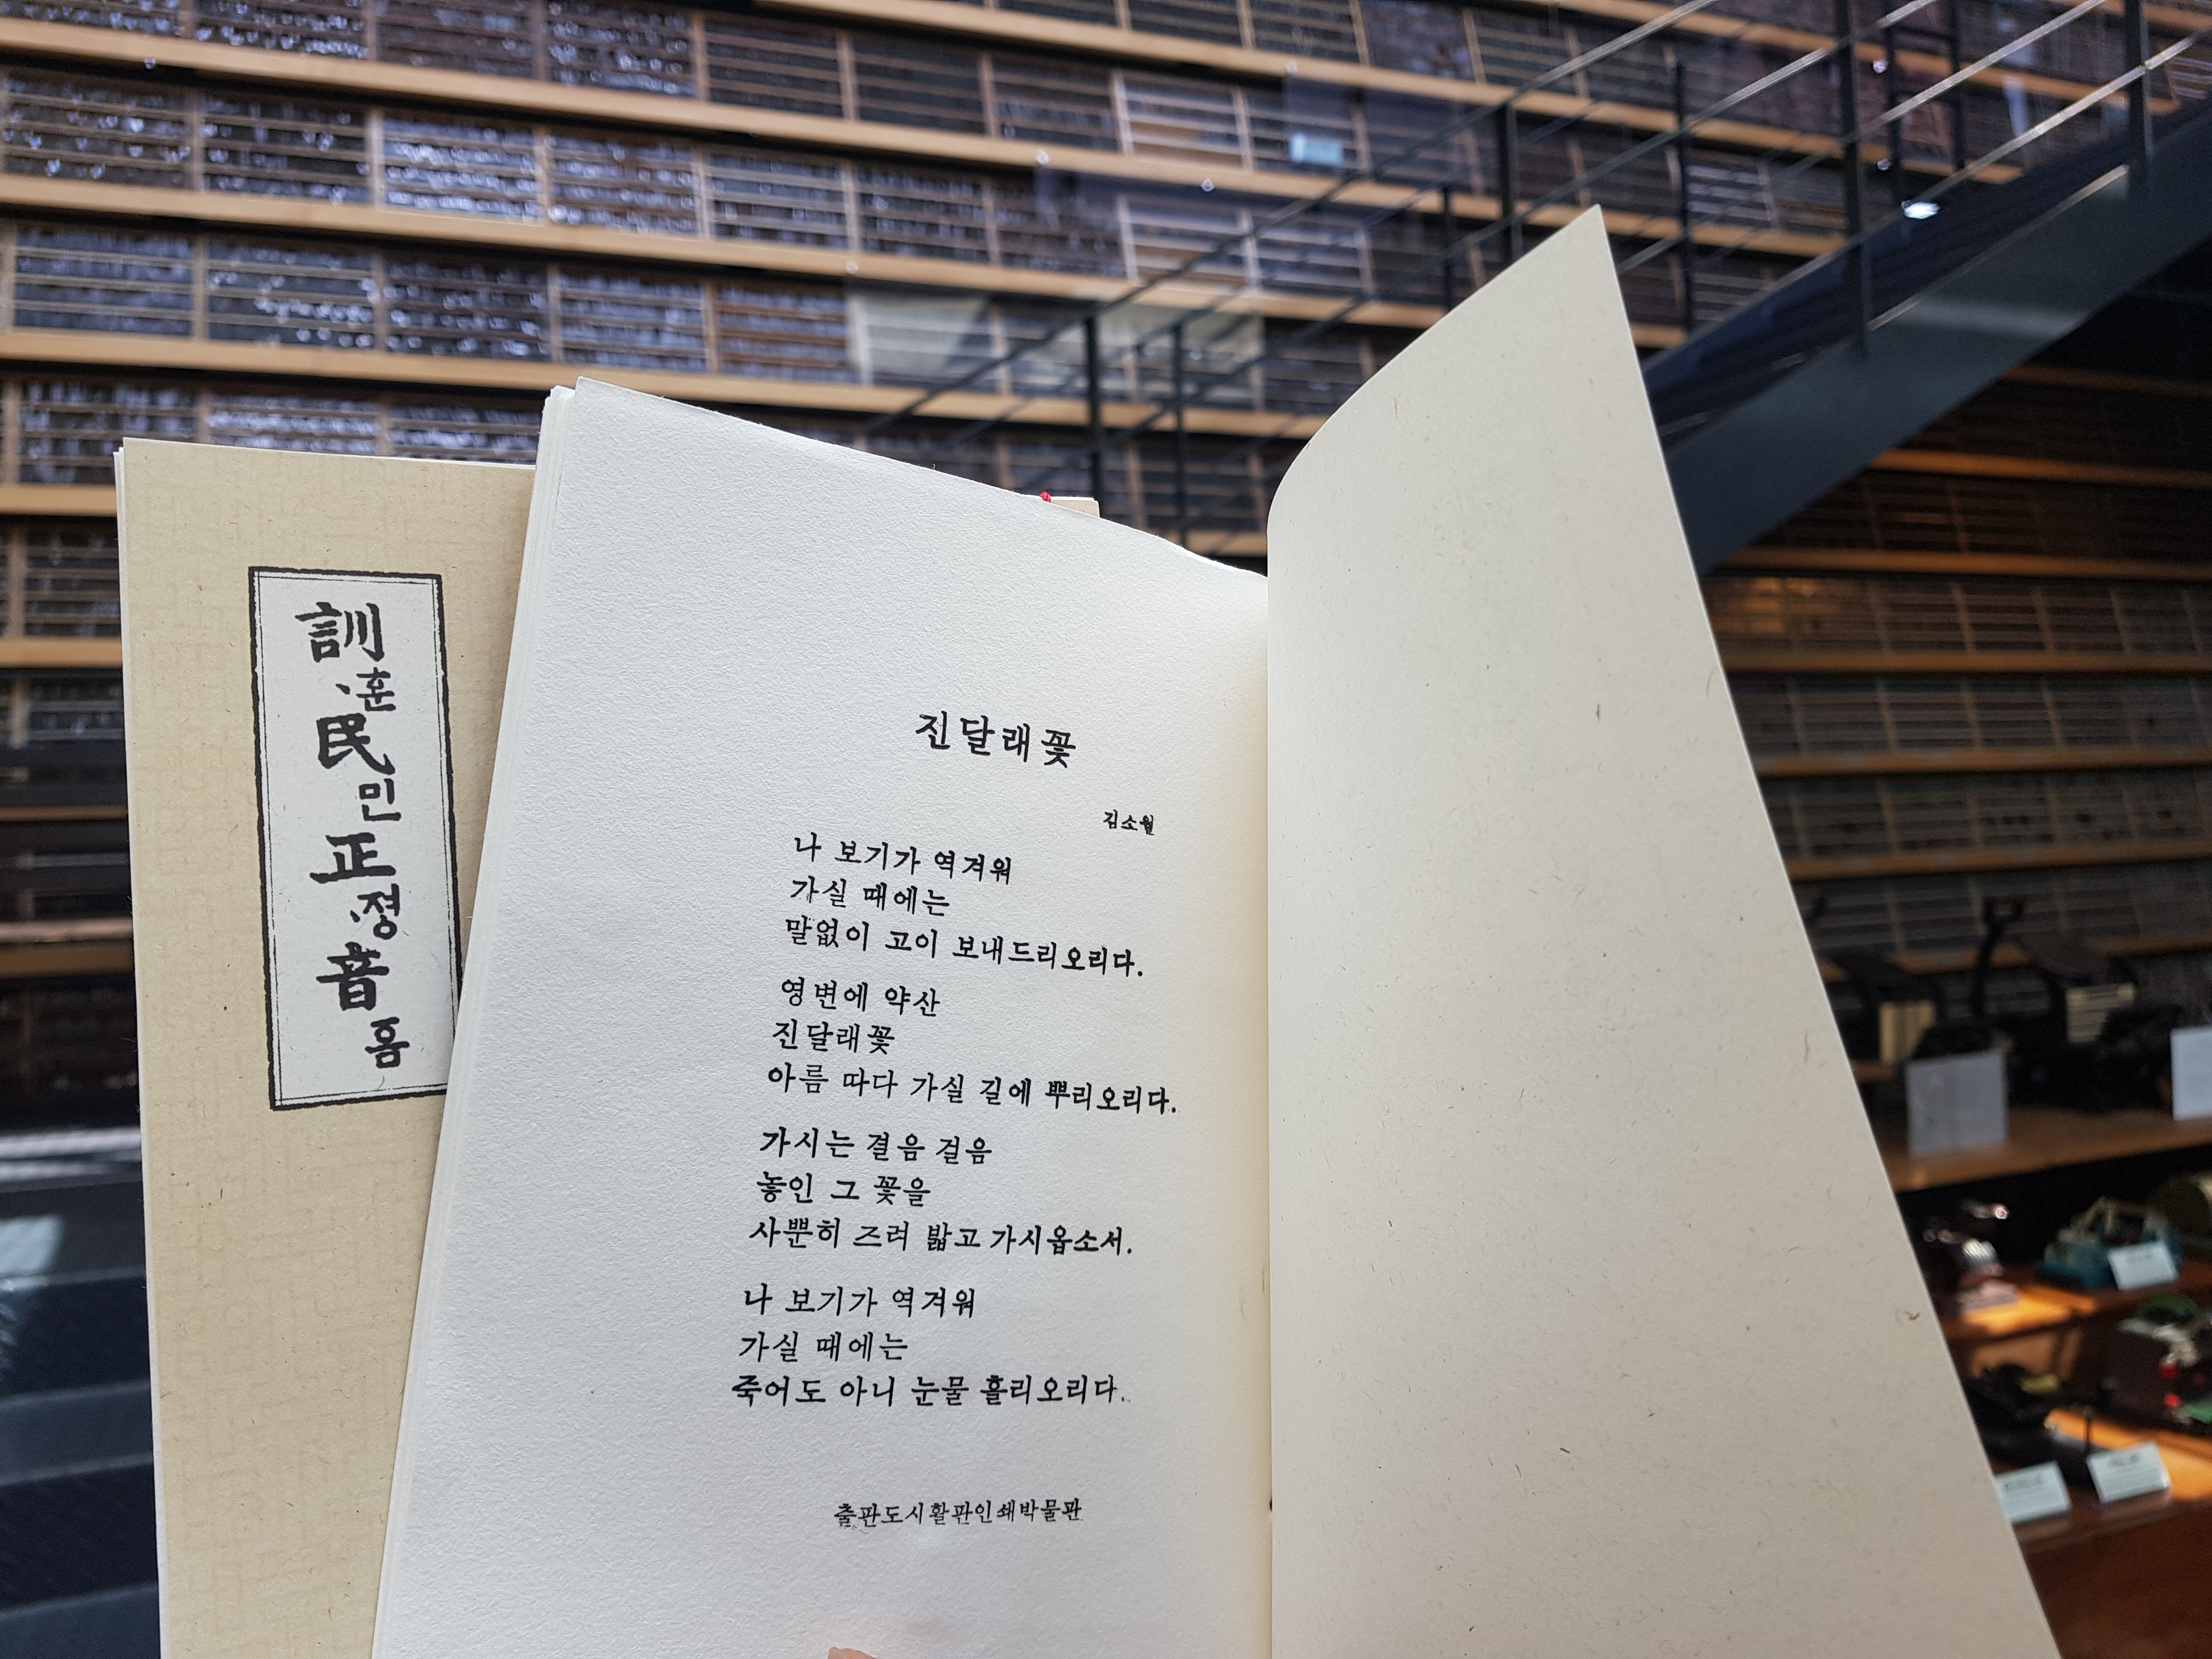 訓
훈
民
민
正
정
音
흠
진달래꽃
김소월
나 보기가 역겨워
가실 때에는
말없이 고이 보내드리오리다.
영변에 약산
진달래꽃
아름 따다 가실 길에 뿌리오리다.
가시는 결음 걸음
놓인 그 꽃을
사뿐히 즈려 밟고 가시옵소서.
나 보기가 역겨워
가실 때에는
죽어도 아니 눈물 흘리오리다.
출판도시활판인쇄박물관